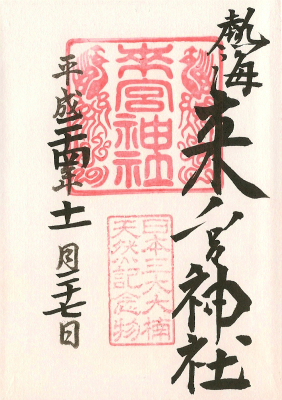 熱海
来ノ宮神社
來宮神社
日本三大大楠
天然記念物
平成二十四年十一月二十七日